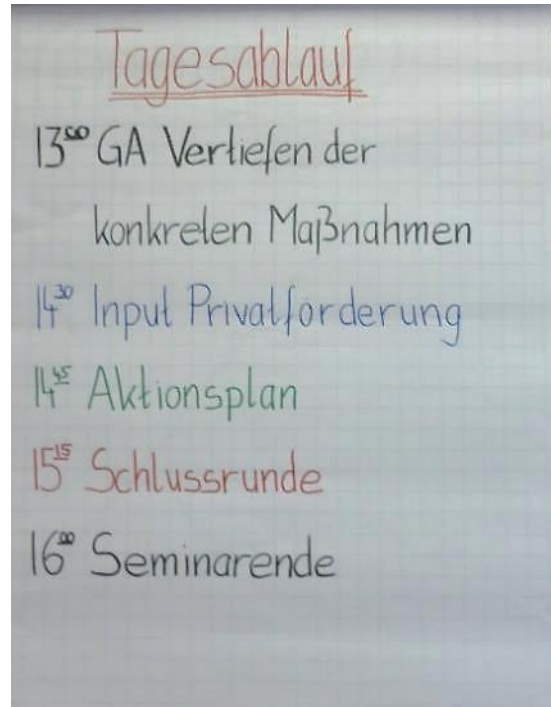 Tagesablauf
13⁰⁰ GA Vertiefen der
konkreten Maßnahmen
14³⁰ Input Privatforderung
14⁴⁵ Aktionsplan
15¹⁵ Schlussrunde
16⁰⁰ Seminarende